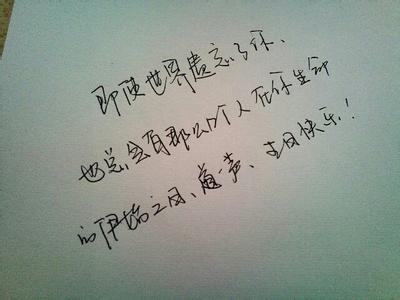 即使世界遗忘了你、
也总会有那么个人在你生命
的伊始之日、道声、生日快乐！